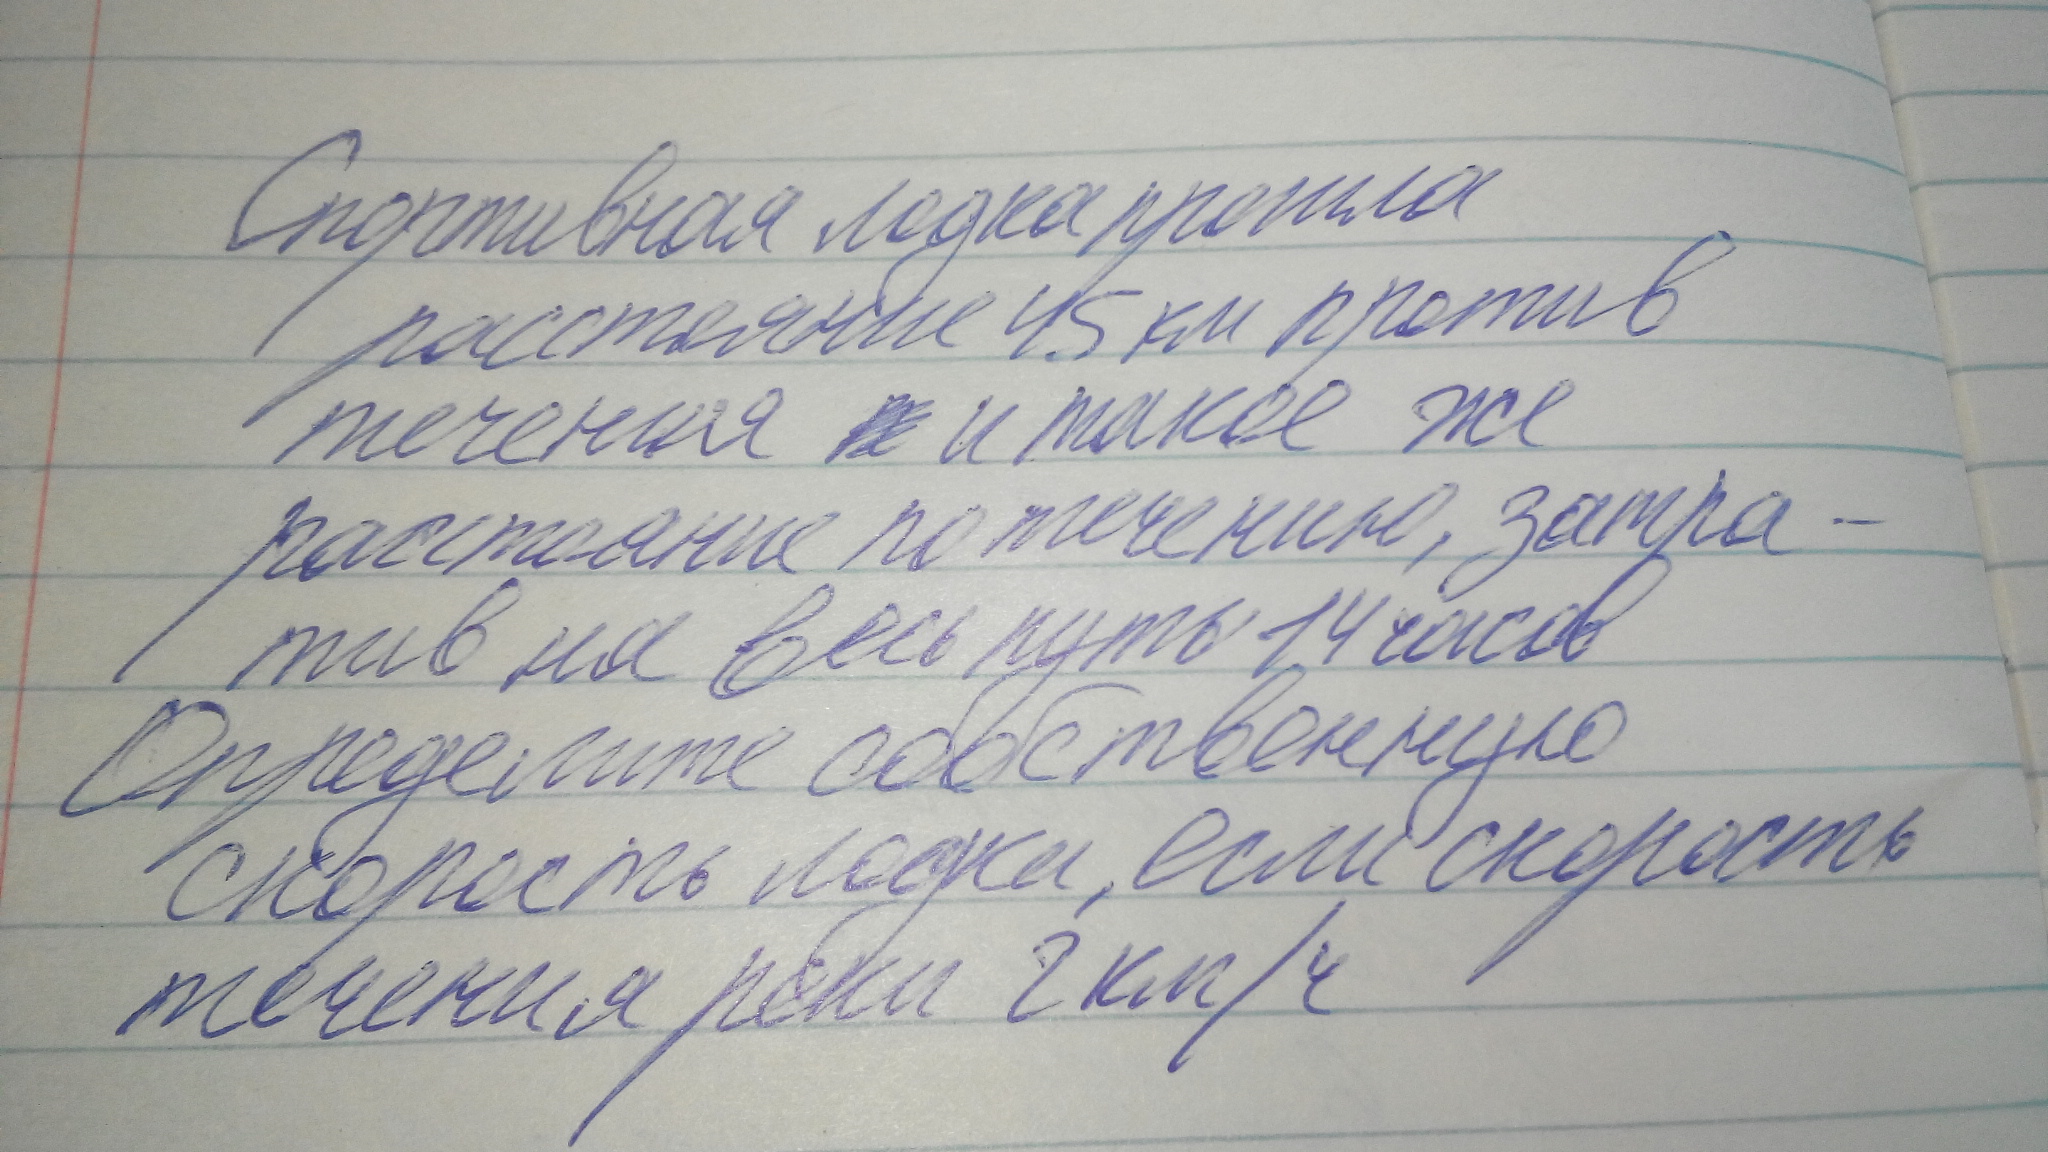 Спортивная лодка прошла
расстояние 45 км против
течения и такое же
расстояние по течению, затра-
тив на весь путь 14 часов
Определите собственную
скорость лодки, если скорость
течения реки 2 км/ч